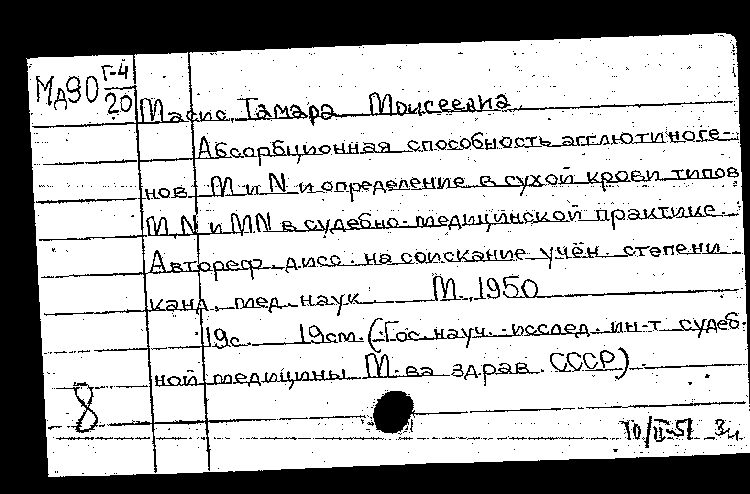 Мд90 Г-4
20
Масис, Тамара Моисеевна.
Абсорбционная способность агглютиноге-
нов М и N и определение в сухой крови типов
М, N и МN в судебно-медицинской практике.
Автореф. дисс. на соискание учён. степени
канд. мед. наук М., 1950
19с. 19см. (Гос. науч.-исслед. ин-т судеб-
ной медицины М-ва здрав. СССР).
8
10/II-51